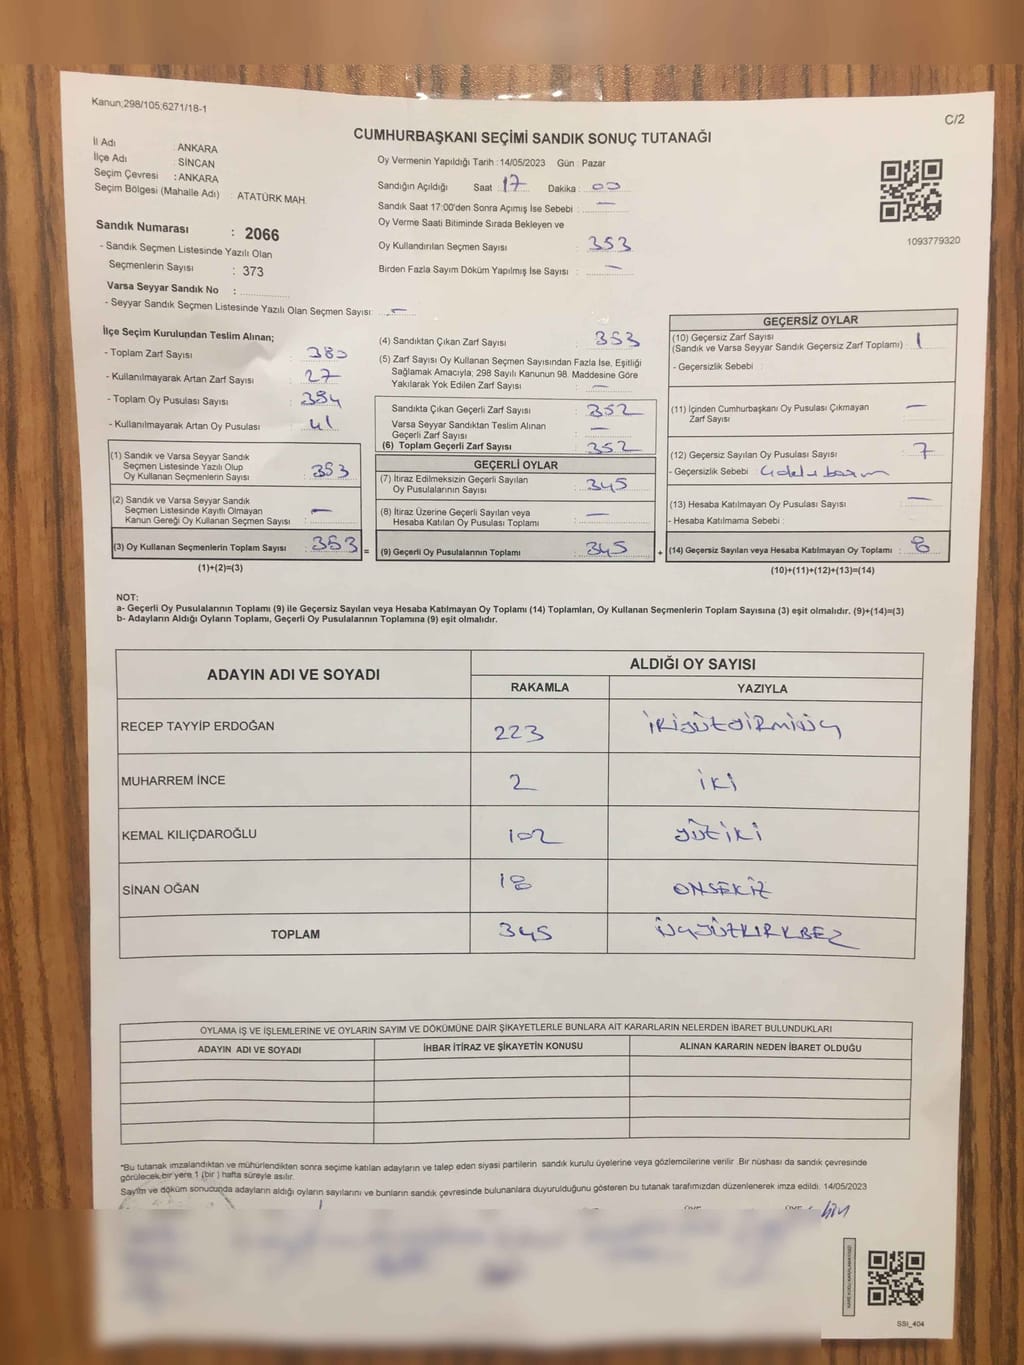 Kanun;298/105;6271/18-1
C/2
CUMHURBAŞKANI SEÇİMİ SANDIK SONUÇ TUTANAĞI
İl Adı : ANKARA
İlçe Adı : SİNCAN
Seçim Çevresi : ANKARA
Seçim Bölgesi (Mahalle Adı) : ATATÜRK MAH.
Oy Vermenin Yapıldığı Tarih :14/05/2023 Gün : Pazar
Sandığın Açıldığı Saat 17 Dakika : 00
Sandık Saat 17:00'den Sonra Açımış İse Sebebi : —
Oy Verme Saati Bitiminde Sırada Bekleyen ve
Oy Kullandırılan Seçmen Sayısı : 353
Birden Fazla Sayım Döküm Yapılmış İse Sayısı : —
1093779320
Sandık Numarası : 2066
- Sandık Seçmen Listesinde Yazılı Olan
Seçmenlerin Sayısı : 373
Varsa Seyyar Sandık No :
- Seyyar Sandık Seçmen Listesinde Yazılı Olan Seçmen Sayısı: —
İlçe Seçim Kurulundan Teslim Alınan;
- Toplam Zarf Sayısı : 380
- Kullanılmayarak Artan Zarf Sayısı : 27
- Toplam Oy Pusulası Sayısı : 394
- Kullanılmayarak Artan Oy Pusulası : 41
(1) Sandık ve Varsa Seyyar Sandık
Seçmen Listesinde Yazılı Olup
Oy Kullanan Seçmenlerin Sayısı : 353
(2) Sandık ve Varsa Seyyar Sandık
Seçmen Listesinde Kayıtlı Olmayan
Kanun Gereği Oy Kullanan Seçmen Sayısı : —
(3) Oy Kullanan Seçmenlerin Toplam Sayısı : 353 =
(1)+(2)=(3)
(4) Sandıktan Çıkan Zarf Sayısı : 353
(5) Zarf Sayısı Oy Kullanan Seçmen Sayısından Fazla İse, Eşitliği
Sağlamak Amacıyla; 298 Sayılı Kanunun 98. Maddesine Göre
Yakılarak Yok Edilen Zarf Sayısı : —
Sandıkta Çıkan Geçerli Zarf Sayısı : 352
Varsa Seyyar Sandıktan Teslim Alınan
Geçerli Zarf Sayısı : —
(6) Toplam Geçerli Zarf Sayısı : 352
GEÇERLİ OYLAR
(7) İtiraz Edilmeksizin Geçerli Sayılan
Oy Pusulalarının Sayısı : 345
(8) İtiraz Üzerine Geçerli Sayılan veya
Hesaba Katılan Oy Pusulası Toplamı : —
(9) Geçerli Oy Pusulalarının Toplamı : 345 +
GEÇERSİZ OYLAR
(10) Geçersiz Zarf Sayısı
(Sandık ve Varsa Seyyar Sandık Geçersiz Zarf Toplamı) : 1
- Geçersizlik Sebebi :
(11) İçinden Cumhurbaşkanı Oy Pusulası Çıkmayan
Zarf Sayısı : —
(12) Geçersiz Sayılan Oy Pusulası Sayısı : 7
- Geçersizlik Sebebi
(13) Hesaba Katılmayan Oy Pusulası Sayısı : —
- Hesaba Katılmama Sebebi :
(14) Geçersiz Sayılan veya Hesaba Katılmayan Oy Toplamı : 8
(10)+(11)+(12)+(13)=(14)
NOT:
a- Geçerli Oy Pusulalarının Toplamı (9) ile Geçersiz Sayılan veya Hesaba Katılmayan Oy Toplamı (14) Toplamları, Oy Kullanan Seçmenlerin Toplam Sayısına (3) eşit olmalıdır. (9)+(14)=(3)
b- Adayların Aldığı Oyların Toplamı, Geçerli Oy Pusulalarının Toplamına (9) eşit olmalıdır.
ADAYIN ADI VE SOYADI ALDIĞI OY SAYISI
RAKAMLA YAZIYLA
RECEP TAYYİP ERDOĞAN 223 İKİYÜZYİRMİÜÇ
MUHARREM İNCE 2 İKİ
KEMAL KILIÇDAROĞLU 102 YÜZİKİ
SİNAN OĞAN 18 ONSEKİZ
TOPLAM 345 ÜÇYÜZKIRKBEŞ
OYLAMA İŞ VE İŞLEMLERİNE VE OYLARIN SAYIM VE DÖKÜMÜNE DAİR ŞİKAYETLERLE BUNLARA AİT KARARLARIN NELERDEN İBARET BULUNDUKLARI
ADAYIN ADI VE SOYADI İHBAR İTİRAZ VE ŞİKAYETİN KONUSU ALINAN KARARIN NEDEN İBARET OLDUĞU
*Bu tutanak imzalandıktan ve mühürlendikten sonra seçime katılan adayların ve talep eden siyasi partilerin sandık kurulu üyelerine veya gözlemcilerine verilir. Bir nüshası da sandık çevresinde
görülecek bir yere 1 (bir) hafta süreyle asılır.
Sayım ve döküm sonucunda adayların aldığı oyların sayılarını ve bunların sandık çevresinde bulunanlara duyurulduğunu gösteren bu tutanak tarafımızdan düzenlenerek imza edildi. 14/05/2023
SSI_404